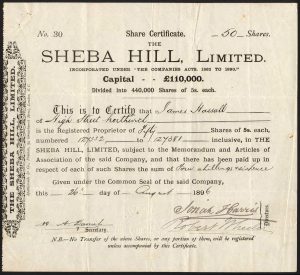 No. 30 Share Certificate. 50 Shares.
THE
SHEBA HILL, LIMITED.
INCORPORATED UNDER "THE COMPANIES ACTS, 1862 TO 1890."
Capital - - £110,000.
Divided into 440,000 Shares of 5s. each.
This is to Certify that James Hassall
of High Street Northwich
is the Registered Proprietor of Fifty Shares of 5s. each,
numbered to 127081 inclusive, in THE
SHEBA HILL, LIMITED, subject to the Memorandum and Articles of
Association of the said Company, and that there has been paid up in
respect of each of such Shares the sum of Four shillings
Given under the Common Seal of the said Company,
this 26th day of August 1896
Secretary.
N.B.—No Transfer of the above Shares, or any portion of them, will be registered
unless accompanied by this Certificate.
THE SHEBA HILL, LIMITED.